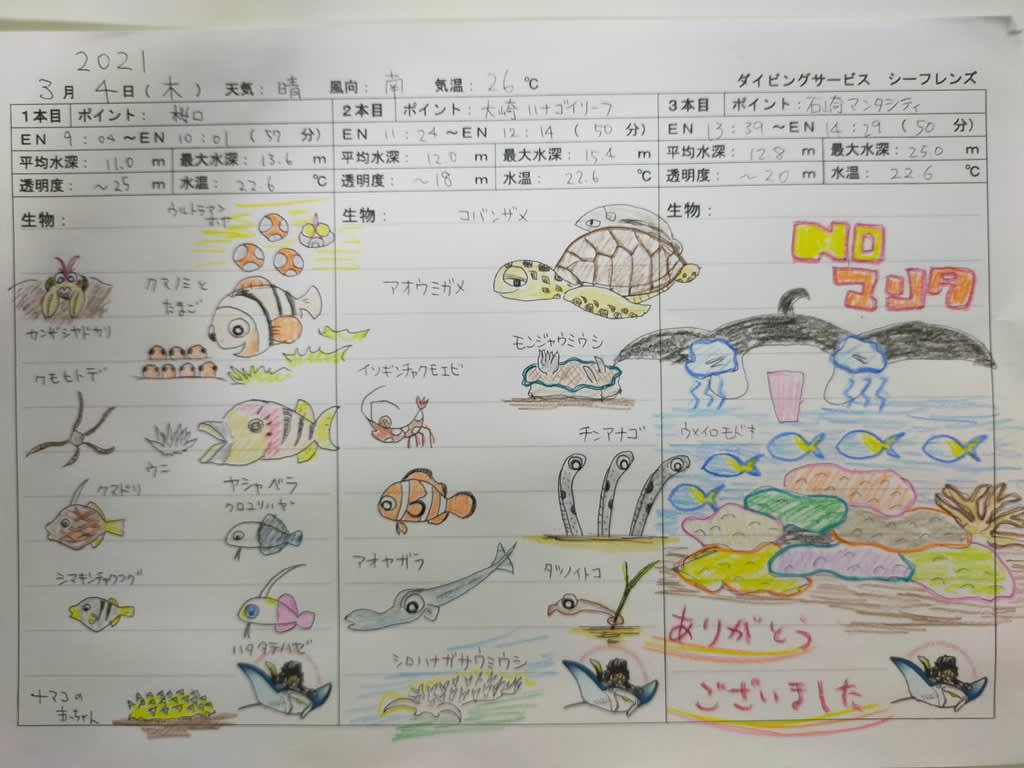 2021
3月 4日(木) 天気：晴 風向：南 気温：26℃
ダイビングサービス シーフレンズ
1本目 ポイント：桜口
EN 9：04～EN 10：01 (57 分)
平均水深：11.0 m 最大水深：13.6 m
透明度：～25 m 水温：22.6 ℃
生物：
ウルトラマン
クマノミと
たまご
カンザシヤドカリ
クモヒトデ
ウニ
クマドリ
ヤシャベラ
クロユリハゼ
シマキンチャクフグ
ハタタテハゼ
ナマコの
2本目 ポイント：大崎ハナゴイリーフ
EN 11：24～EN 12：14 (50 分)
平均水深：12.0 m 最大水深：15.4 m
透明度：～18 m 水温：22.6 ℃
生物：
コバンザメ
アオウミガメ
モンジャウミウシ
イソギンチャクモエビ
チンアナゴ
アオヤガラ
タツノイトコ
シロハナガサウミウシ
3本目 ポイント：石崎マンタシティ
EN 13：39～EN 14：29 (50 分)
平均水深：12.8 m 最大水深：25.0 m
透明度：～20 m 水温：22.6 ℃
生物：
NO
マンタ
ウメイロモドキ
ありがとう
ございました